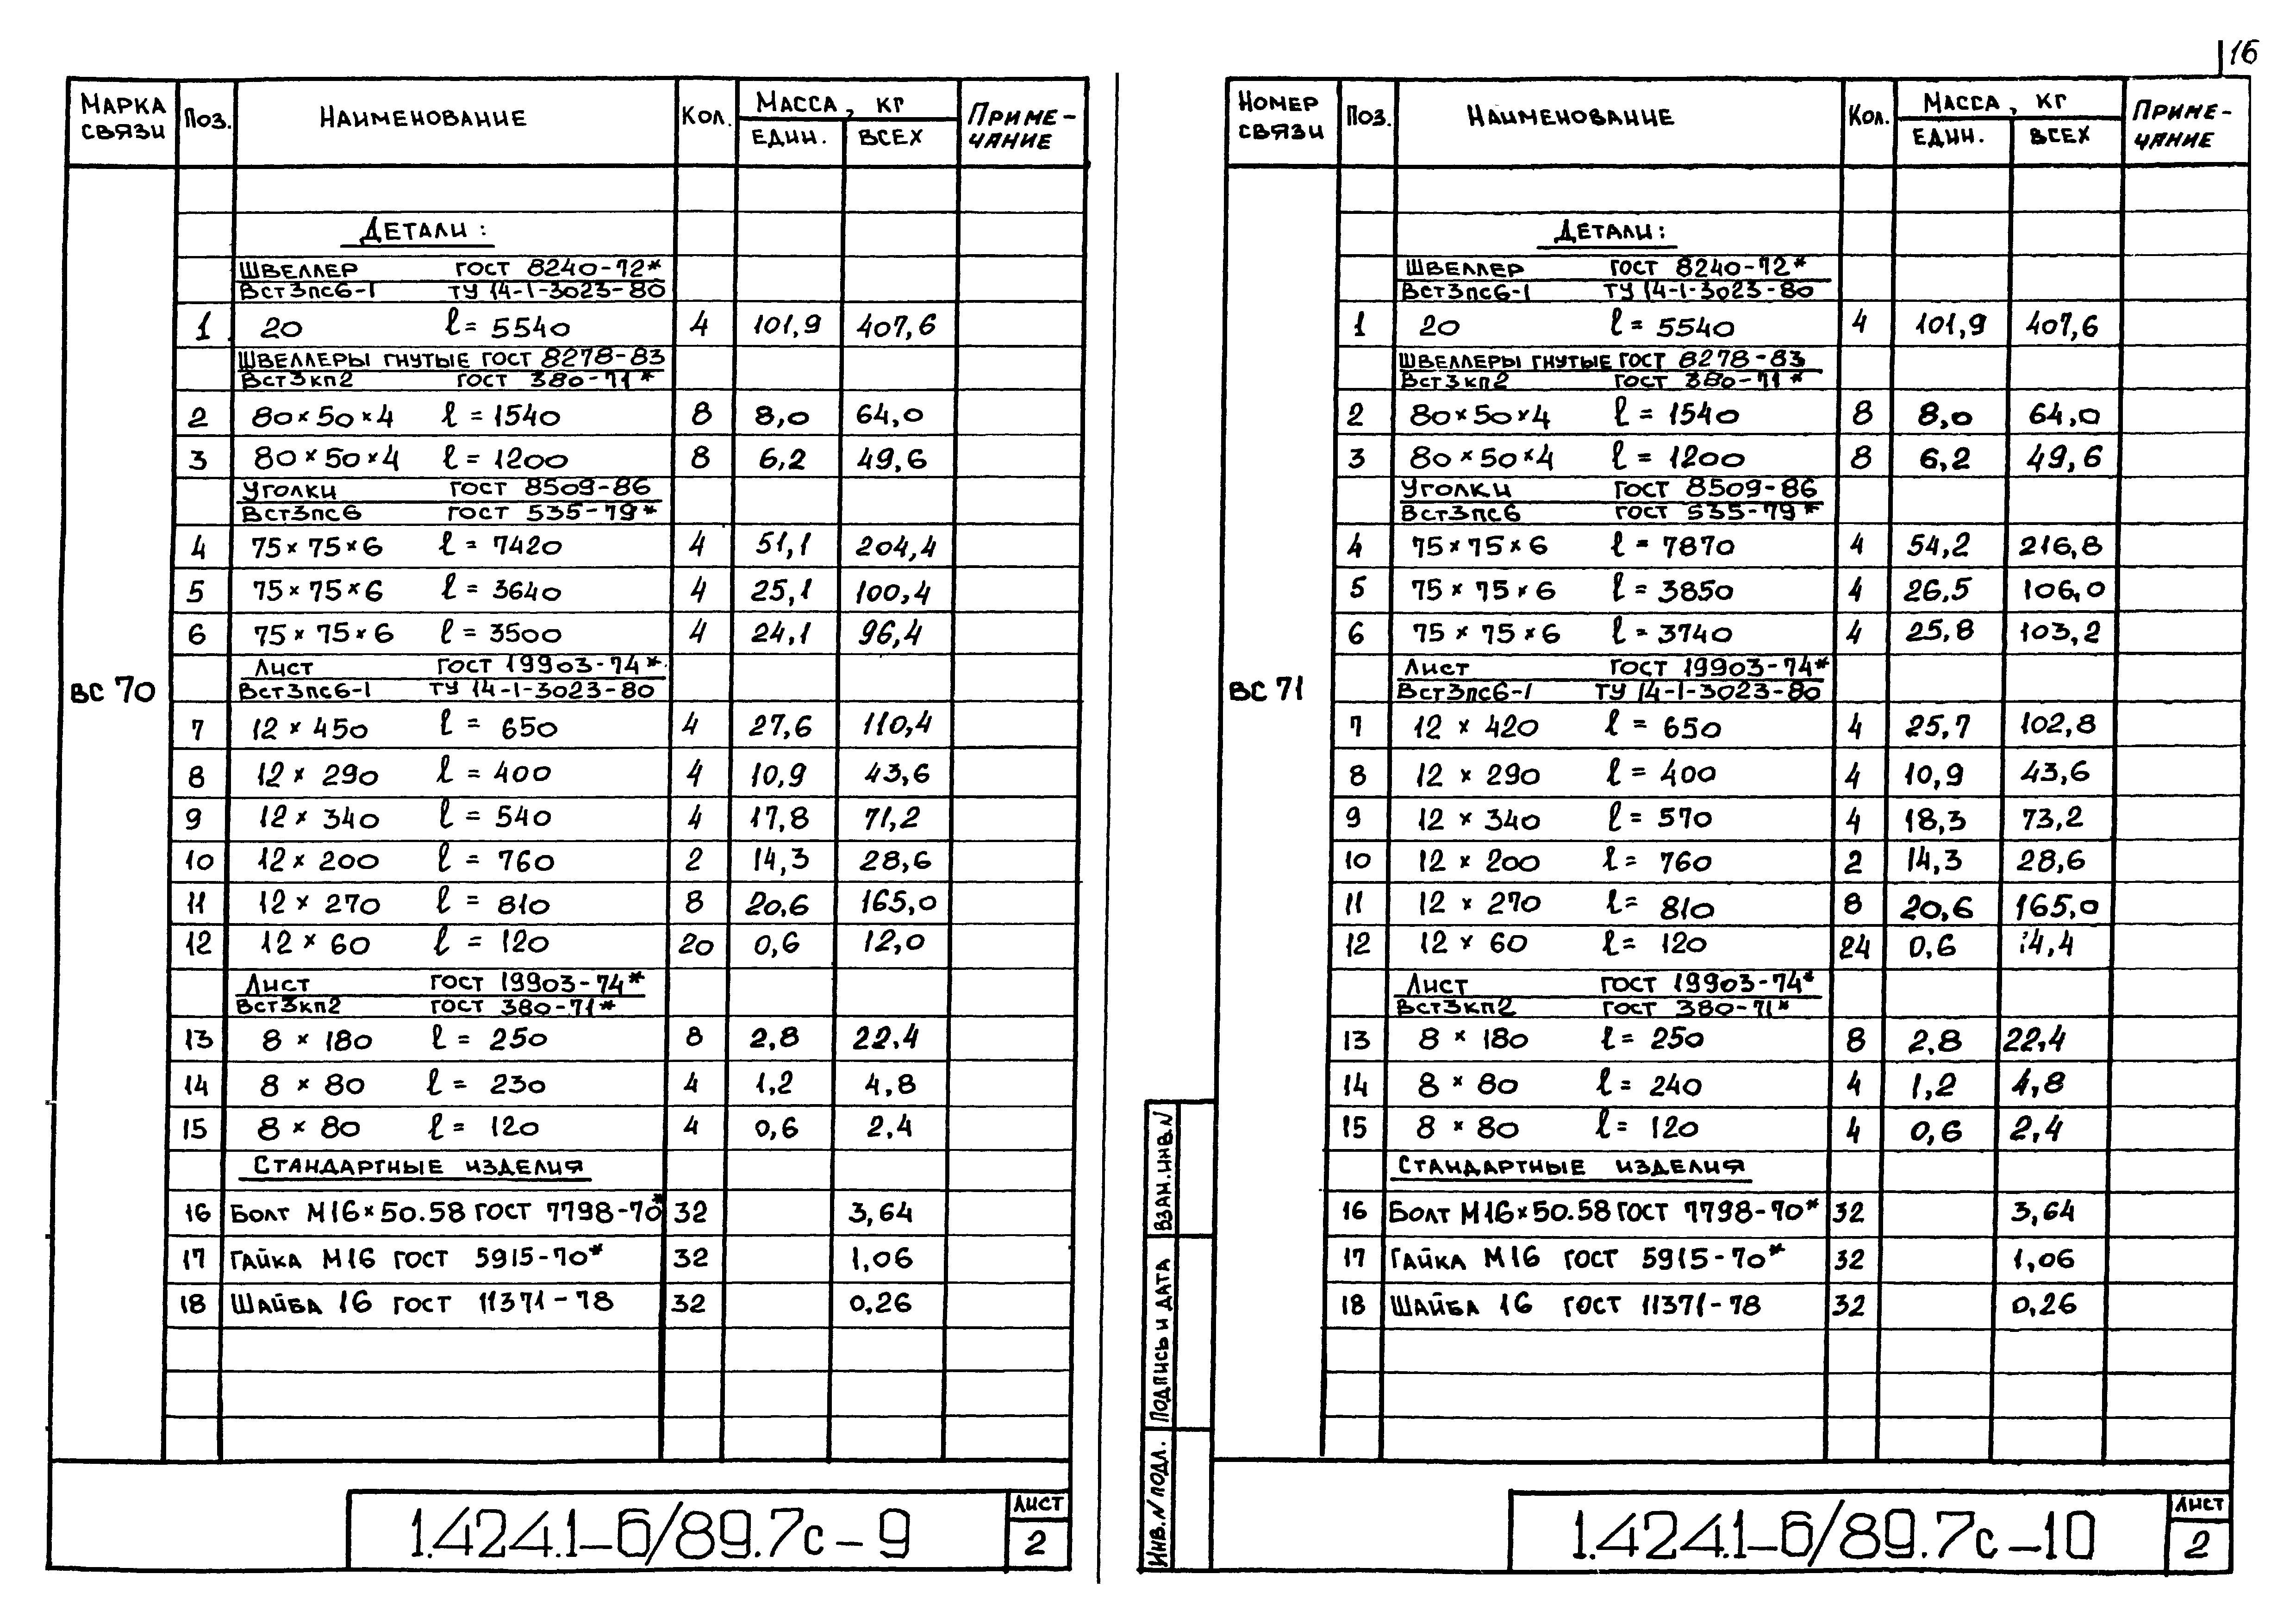 16
МАРКА СВЯЗИ ПОЗ. НАИМЕНОВАНИЕ КОЛ. МАССА, КГ ЕДИН. ВСЕХ ПРИМЕ-ЧАНИЕ
ДЕТАЛИ:
ШВЕЛЛЕР ГОСТ 8240-72*
ВСт3пс6-1 ТУ 14-1-3023-80
1 20 ℓ= 5540 4 101,9 407,6
ШВЕЛЛЕРЫ ГНУТЫЕ ГОСТ 8278-83
ВСт3кп2 ГОСТ 380-71*
2 80×50×4 ℓ = 1540 8 8,0 64,0
3 80×50×4 ℓ = 1200 8 6,2 49,6
УГОЛКИ ГОСТ 8509-86
ВСт3пс6 ГОСТ 535-79*
4 75×75×6 ℓ = 7420 4 51,1 204,4
5 75×75×6 ℓ = 3640 4 25,1 100,4
6 75×75×6 ℓ = 3500 4 24,1 96,4
ЛИСТ ГОСТ 19903-74*
ВС 70 ВСт3пс6-1 ТУ 14-1-3023-80
7 12×450 ℓ = 650 4 27,6 110,4
8 12×290 ℓ = 400 4 10,9 43,6
9 12×340 ℓ = 540 4 17,8 71,2
10 12×200 ℓ = 760 2 14,3 28,6
11 12×270 ℓ = 810 8 20,6 165,0
12 12×60 ℓ = 120 20 0,6 12,0
ЛИСТ ГОСТ 19903-74*
ВСт3кп2 ГОСТ 380-71*
13 8×180 ℓ = 250 8 2,8 22,4
14 8×80 ℓ = 230 4 1,2 4,8
15 8×80 ℓ = 120 4 0,6 2,4
СТАНДАРТНЫЕ ИЗДЕЛИЯ
16 БОЛТ М16×50.58 ГОСТ 7798-70* 32 3,64
17 ГАЙКА М16 ГОСТ 5915-70* 32 1,06
18 ШАЙБА 16 ГОСТ 11371-78 32 0,26
1.424.1-6/89.7с-9
ЛИСТ
2
НОМЕР СВЯЗИ ПОЗ. НАИМЕНОВАНИЕ КОЛ. МАССА, КГ ЕДИН. ВСЕХ ПРИМЕ-ЧАНИЕ
ДЕТАЛИ:
ШВЕЛЛЕР ГОСТ 8240-72*
ВСт3пс6-1 ТУ 14-1-3023-80
1 20 ℓ = 5540 4 101,9 407,6
ШВЕЛЛЕРЫ ГНУТЫЕ ГОСТ 8278-83
ВСт3кп2 ГОСТ 380-71*
2 80×50×4 ℓ = 1540 8 8,0 64,0
3 80×50×4 ℓ = 1200 8 6,2 49,6
УГОЛКИ ГОСТ 8509-86
ВСт3пс6 ГОСТ 535-79*
4 75×75×6 ℓ = 7870 4 54,2 216,8
5 75×75×6 ℓ = 3850 4 26.5 106,0
6 75×75×6 ℓ = 3740 4 25,8 103,2
ЛИСТ ГОСТ 19903-74*
ВС 71 ВСт3пс6-1 ТУ 14-1-3023-80
7 12×420 ℓ = 650 4 25,7 102,8
8 12×290 ℓ = 400 4 10,9 43,6
9 12×340 ℓ = 570 4 18,3 73,2
10 12×200 ℓ = 760 2 14,3 28,6
11 12×270 ℓ= 810 8 20,6 165,0
12 12×60 ℓ= 120 24 0,6 14,4
ЛИСТ ГОСТ 19903-74*
ВСт3кп2 ГОСТ 380-71*
13 8×180 ℓ= 250 8 2,8 22,4
14 8×80 ℓ= 240 4 1,2 4,8
15 8×80 ℓ= 120 4 0,6 2,4
СТАНДАРТНЫЕ ИЗДЕЛИЯ
16 БОЛТ М16×50.58 ГОСТ 7798-70* 32 3,64
17 ГАЙКА М16 ГОСТ 5915-70* 32 1,06
18 ШАЙБА 16 ГОСТ 11371-78 32 0,26
ВЗАМ.ИНВ.№
ПОДПИСЬ И ДАТА
ИНВ.№ ПОДЛ.
1.424.1-6/89.7с-10
ЛИСТ
2